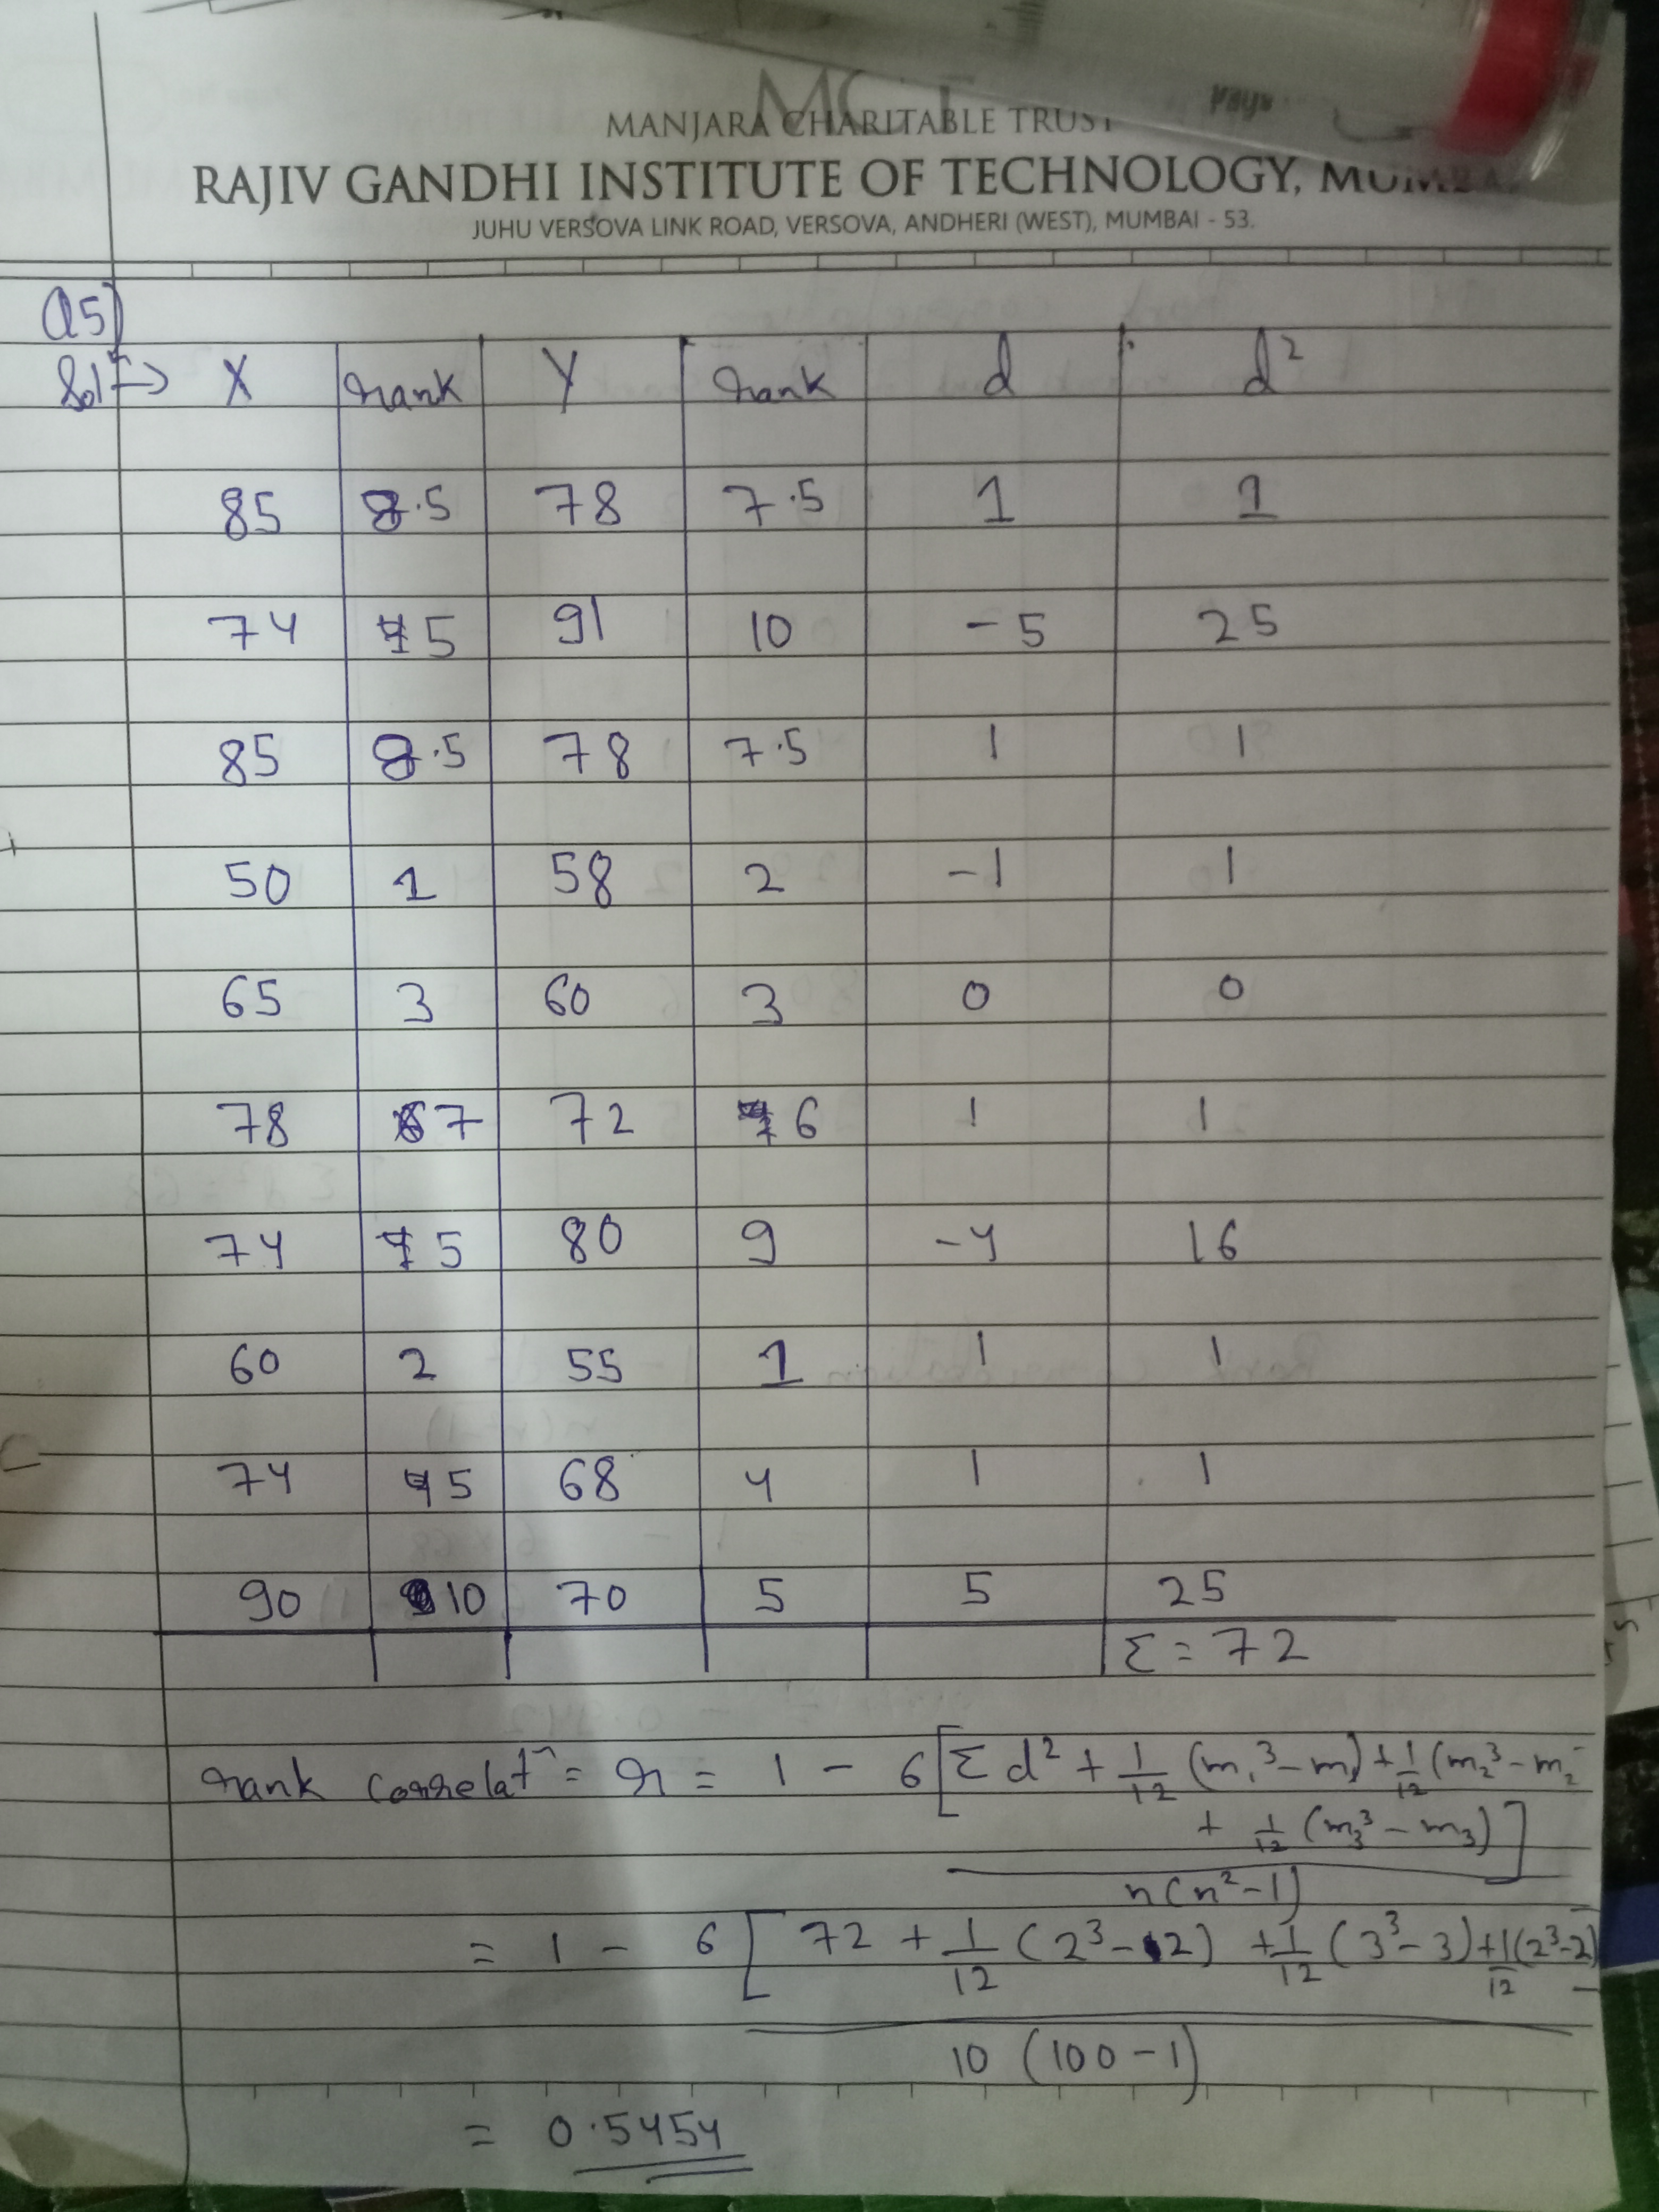 MANJARA CHARITABLE TRUST
RAJIV GANDHI INSTITUTE OF TECHNOLOGY, MUMBAI
JUHU VERSOVA LINK ROAD, VERSOVA, ANDHERI (WEST), MUMBAI - 53.
Q5)
Solⁿ → X rank Y rank d d²
85 8.5 78 7.5 1 1
74 5 91 10 -5 25
85 8.5 78 7.5 1 1
50 1 58 2 -1 1
65 3 60 3 0 0
78 7 72 6 1 1
74 5 80 9 -4 16
60 2 55 1 1 1
74 5 68 4 1 1
90 10 70 5 5 25
Σ = 72
rank correlatⁿ = r = 1 - 6[Σd² + 1/12 (m₁³ - m₁) + 1/12 (m₂³ - m₂
+ 1/12 (m₃³ - m₃)]
n(n²-1)
= 1 - 6[72 + 1/12 (2³ - 2) + 1/12 (3³ - 3) + 1/12 (2³-2)
10 (100 - 1)
= 0.5454